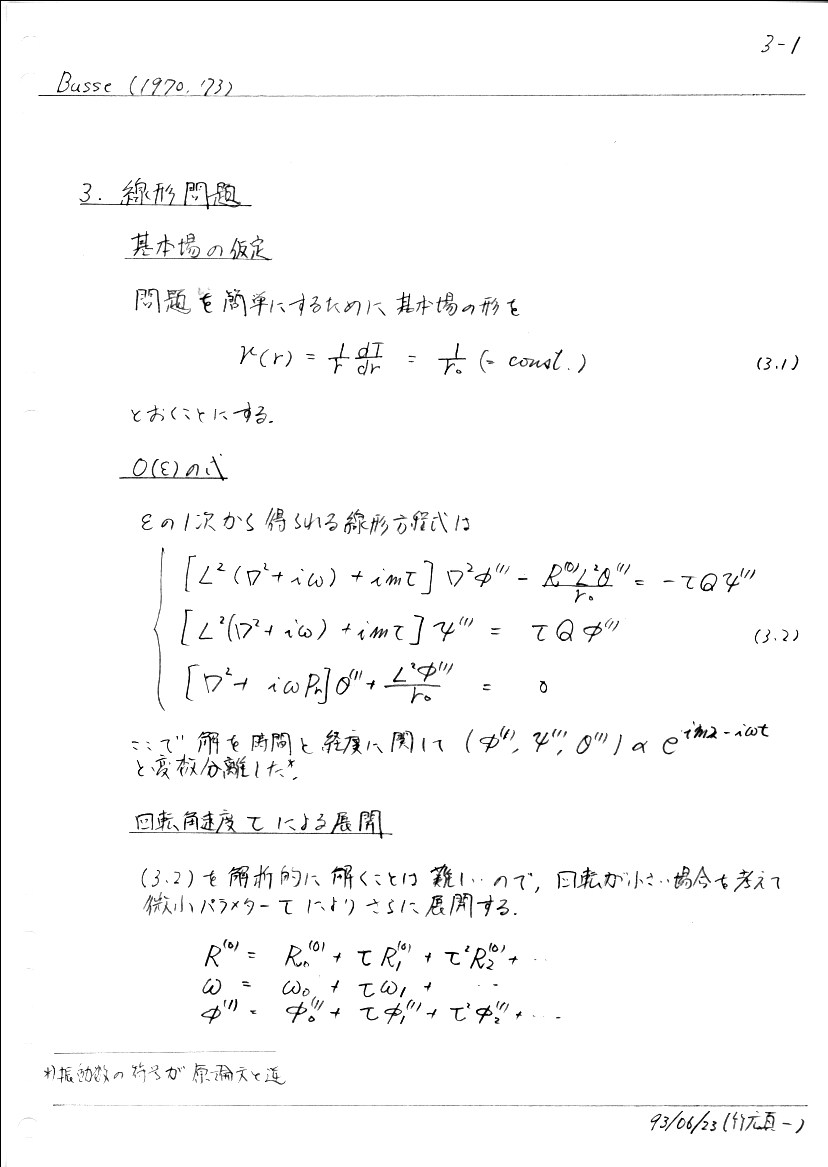 3-1
Busse (1970, '73)
3. 線形問題
基本場の仮定
問題を簡単にするために基本場の形を
γ(r) = 1/r dT/dr = 1/r₀ (= const.) (3.1)
とおくことにする.
O(ε)の式
εの1次から得られる線形方程式は
[L²(∇²+iω)+imτ]∇²Φ⁽¹⁾ - R⁽⁰⁾L²Θ⁽¹⁾/r₀ = -τQΨ⁽¹⁾
[L²(∇²+iω)+imτ]Ψ⁽¹⁾ = τQΦ⁽¹⁾ (3.2)
[∇²+ iωPr]Θ⁽¹⁾ + L²Φ⁽¹⁾/r₀ = 0
ここで解を時間と経度に関して (Φ⁽¹⁾, Ψ⁽¹⁾, Θ⁽¹⁾) ∝ e^{imλ-iωt}
と変数分離した*.
回転角速度τによる展開
(3.2)を解析的に解くことは難しいので, 回転が小さい場合を考えて
微小パラメターτによりさらに展開する.
R⁽⁰⁾ = R₀⁽⁰⁾ + τR₁⁽⁰⁾ + τ²R₂⁽⁰⁾ + ...
ω = ω₀ + τω₁ + ...
Φ⁽¹⁾ = Φ₀⁽¹⁾ + τΦ₁⁽¹⁾ + τ²Φ₂⁽¹⁾ + ...
*)振動数の符号が原論文と逆
93/06/23(竹広真一)